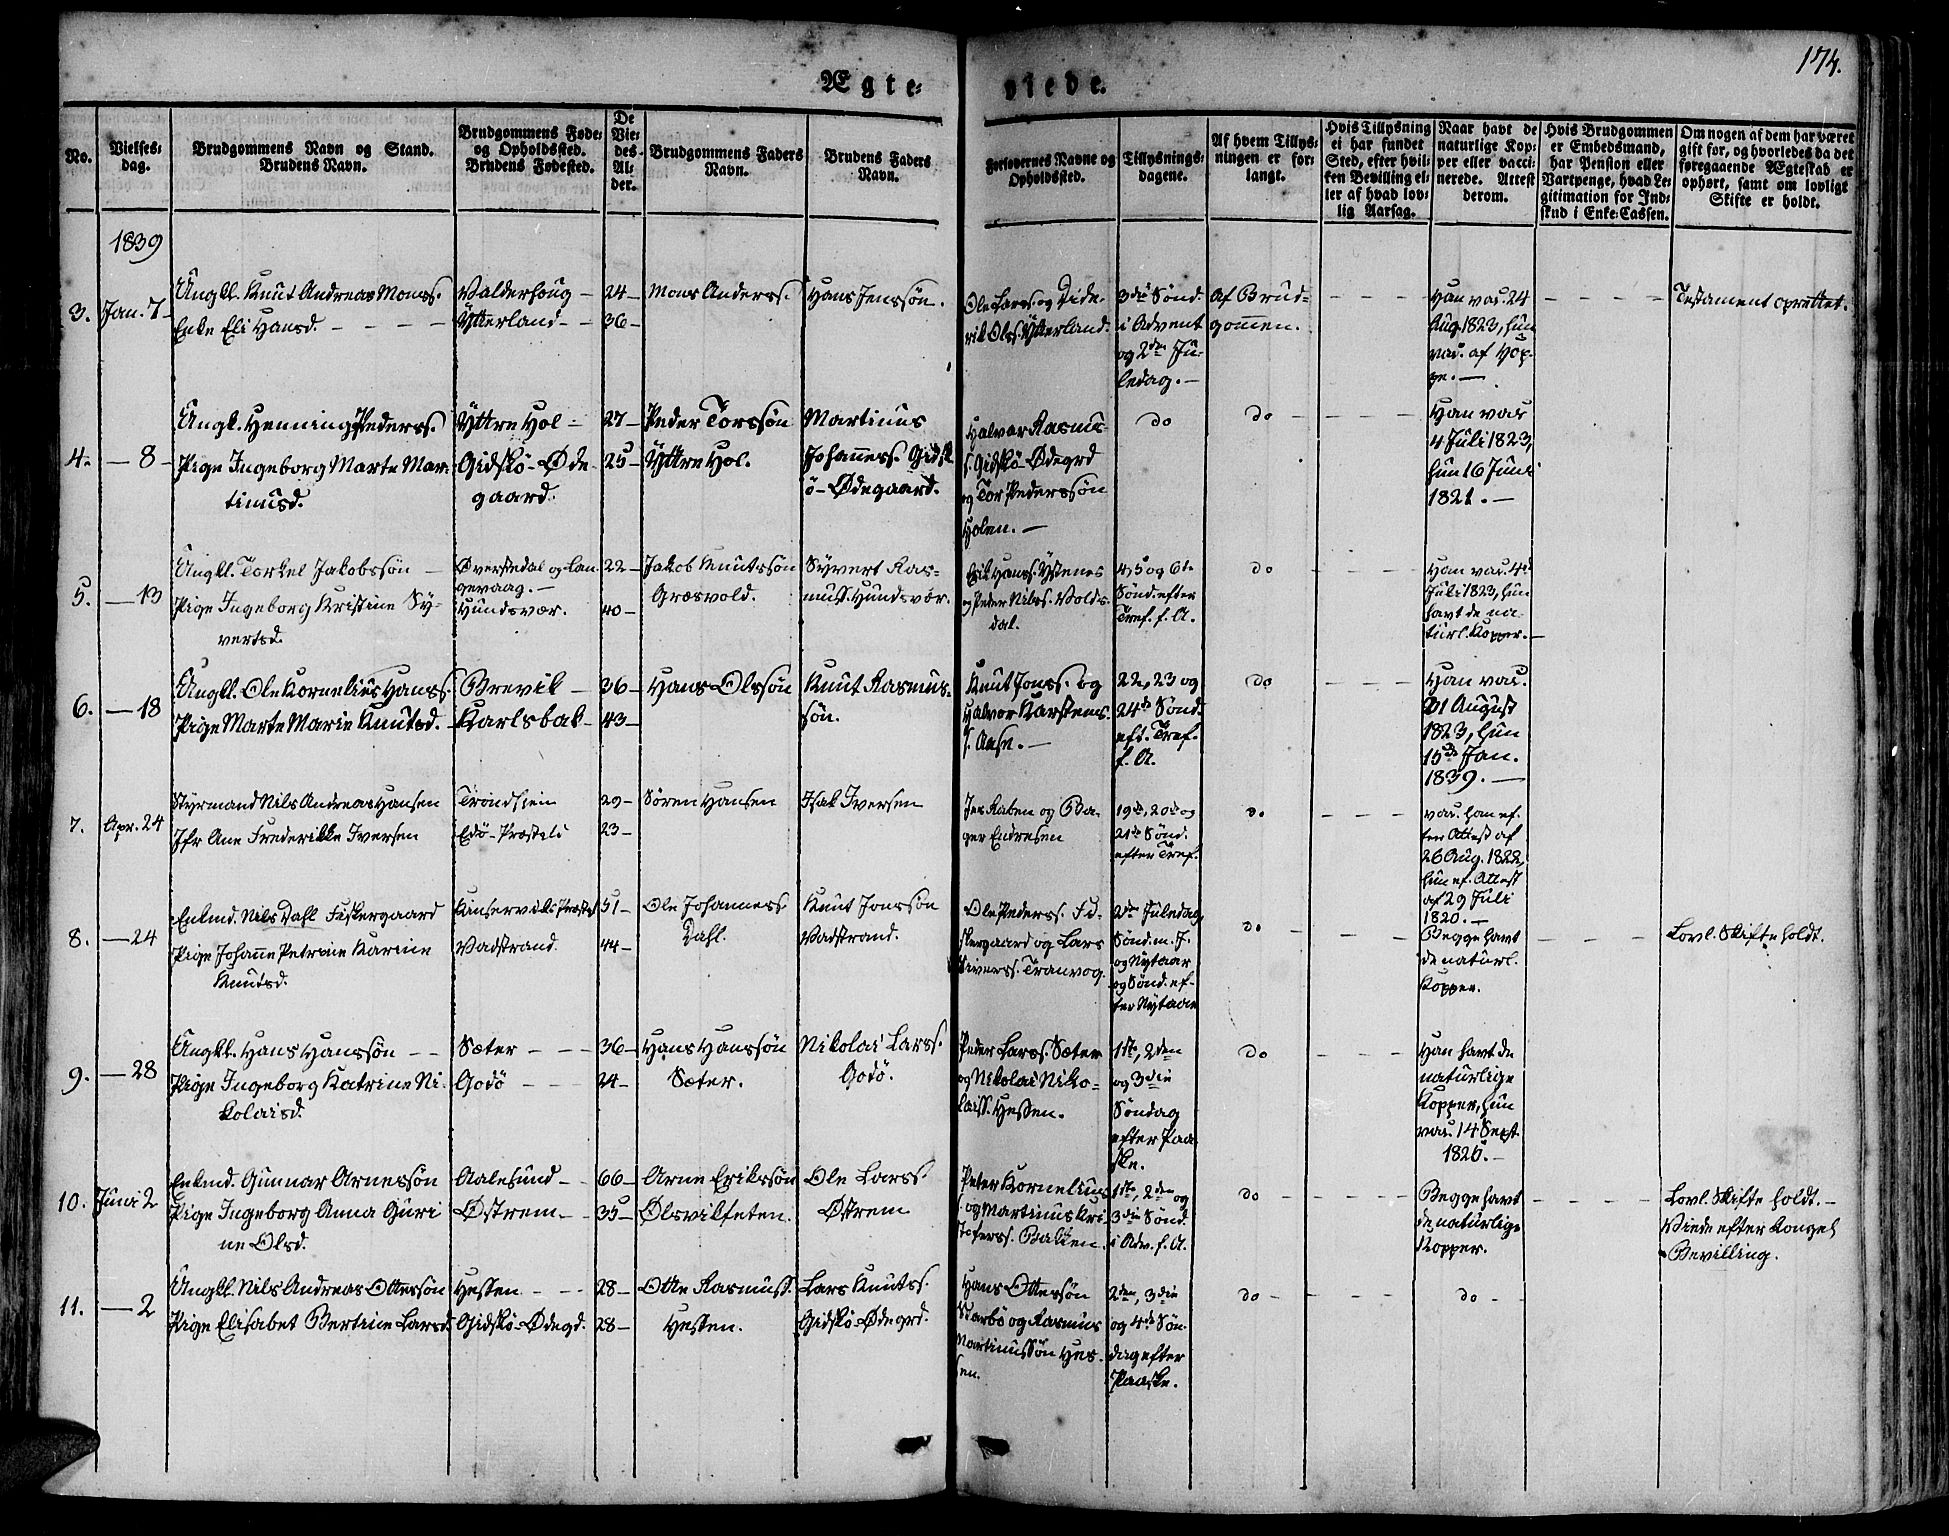 174.
Ægte-
viede.
No.
Vielses-
dag.
Brudgommens Navn og Stand.
Brudens Navn.
Brudgommens Føde-
og Opholdssted.
Brudens Fødested.
De
Vie-
des
Al-
der.
Brudgommens Faders
Navn.
Brudens Faders
Navn.
Forlovernes Navne og
Opholdssted.
Tillysnings-
dagene.
Af hvem Tillys-
ningen er for-
langt.
Hvis Tillysning
ei har fundet
Sted, efter hvil-
ken Bevilling el-
ler af hvad lov-
lig Aarsag.
Naar havt de
naturlige Kop-
per eller vacci-
nerede. Attest
derom.
Hvis Brudgommen
er Embedsmand,
har Pension eller
Vartpenge, hvad Le-
gitimation for Ind-
skud i Enke-Cassen.
Om nogen af dem har været
gift før, og hvorledes da det
foregaaende Ægteskab er
ophørt, samt om lovligt
Skifte er holdt.
1839
3. Jan. 7
Ungkl. Knut Andreas Monss.
Enke Eli Hansd.
Valderhoug
Ytterland
24
36
Mons Anderss.
Hans Jenssøn.
Ole Larss. og Dide-
rik Olss. Ytterland.
3die Sønd.
i Advent
og 2den Ju-
ledag.
Af Brud-
gommen.
Han vac. 24
Aug. 1823, hun
vac. af Hop-
pe.
Testament oprettet.
4. 8
Ungk. Henning Pederss.
Pige Ingeborg Marte Mar-
tinusd.
Yttre Hol
Gidskö-Øde-
gaard.
27
25
Peder Torssøn
Yttre Hol.
Martinus
Johanness. Gidsk
ö-Ødegaard.
Halvar Rasmus-
s. Gidskö-Ødegrd
og Tor Pederssøn
Holen.
do
do
Han vac.
4 Juli 1823,
hun 16 Juni
1821.
5. 13
Ungkl. Torkel Jakobssøn
Pige Ingeborg Kristine Sy-
vertsd.
Øverstedal og Lan-
gevaag.
Hundsvær.
22
40
Jakob Knutssøn
Græsvold.
Syvert Ras-
muss. Hundsvær.
Erik Hanss. Ystenes
og Peder Nilss. Volds-
dal.
4, 5 og 6te
Sønd. efter
Tref. f. A.
do
Han vac. 4de
Juli 1823, hun
havt de na-
turl. Kopper.
6. 18
Ungkl. Ole Kornelius Hanss.
Pige Marte Marie Knutsd.
Brevik
Karlsbak
36
43
Hans Olssøn
Knut Rasmus-
søn.
Knut Jonss. og
Halvor Karstens-
s. Aase.
22, 23 og
24de Sønd.
eft. Tref.
f. A.
do
Han vac.
21 August
1823, hun
15de Jan.
1839.
7. Apr. 24
Styrmand Nils Andreas Hansen
Jfr Ane Frederikke Iversen
Trondhiem
Edø-Præsteli
29
23
Søren Hansen
Isak Iversen
Jes Raben og Ba-
ger Endresen
19de, 20de og
21de Sønd.
efter Tref.
do
vac. han ef-
ter Attest af
26 Aug. 1822,
hun ef. Attest
af 29 Juli
1820.
8. 24
Enkmd. Nils Dahl Fiskergaard
Pige Johanne Petrine Karine
Knutsd.
Kinserviks Præstel
Vadstrand.
51
44
Ole Johanness.
Dahl.
Knut Jonssøn
Vadstrand.
Ole Pederss. Fi-
skergaard og Lars
Siverss. Tranvog.
2den Juledag,
Sønd. m. J.
og Nytaar
og Sønd. ef-
ter Nytaar
do
Begge havt
de naturl.
Kopper.
Lovl. Skifte holdt.
9. 28
Ungkl. Hans Hanssøn
Pige Ingeborg Katrine Ni-
kolaisd.
Sæter
Godö
36
24
Hans Hanssøn
Sæter.
Nikolai Larss.
Godö.
Peder Larss. Sæter
og Nikolai Niko-
laiss. Hessen.
1ste, 2den
og 3die
Søndag
efter Paa-
ske.
do
Han havt de
naturlige
Kopper, hun
vac. 14 Sept.
1826.
10. Juni 2
Enkmd. Gunnar Arnessøn
Pige Ingeborg Anna Guri
ne Olsd.
Aalesund
Østrem
66
35
Arne Erikssøn
Ølsvikseten.
Ole Larss.
Østrem
Peter Kornelius
s. og Martinus Kri
stofers. Bakken.
1ste, 2den og
3die Sønd.
i Adv. f. A.
do
Begge havt
de naturlige
Kopper.
Lovl. Skifte holdt.
Viede efter Kongel
Bevilling.
11. 2
Ungkl. Nils Andreas Ottessøn
Pige Elisabet Bertine Larsd.
Hessen
Gidskö-Ødegd.
28
28
Otte Rasmuss.
Hessen.
Lars Knutss.
Gidskö-Ødegrd.
Hans Ottessøn
Skarbö og Rasmus
Martinussøn Hes-
sen.
2den, 3die
og 4de Søn-
dag efter
Paaske.
do
do